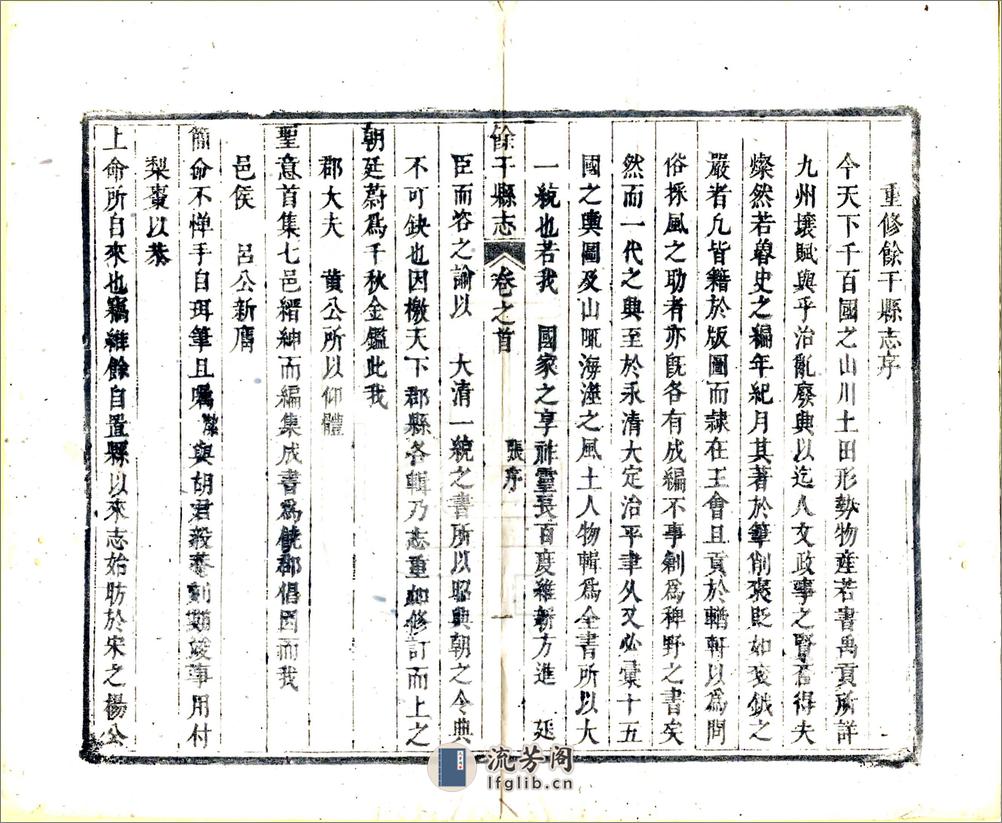 重修餘干縣志序
今天下千百國之山川土田形勢物產若書禹貢所詳
九州壤賦與乎治亂廢興以迄人文政事之賢者得夫
燦然若魯史之編年紀月其著於筆削褒貶如衮鉞之
嚴者凡皆籍於版圖而隷在王會且貢於輶軒以爲問
俗採風之助者亦旣各有成編不事創爲稗野之書矣
然而一代之興至於永清大定治平聿久又必彙十五
國之輿圖及山陬海澨之風土人物輯爲全書所以大
一統也若我 國家之享祚靈長百度維新方進 延
餘干縣志 卷之首 張序 一
臣而咨之諭以 大清一統之書所以昭興朝之令典
不可缺也因檄天下郡縣各輯乃志重加修訂而上之
朝廷蔚爲千秋金鑑此我
郡大夫 黄公所以仰體
聖意首集七邑縉紳而編集成書爲饒郡倡因而我
邑侯 呂公新膺
簡命不憚手自珥筆且囑 與胡君 竣事用付
梨棗以恭
上命所自來也竊維餘自置縣以來志始昉於宋之楊公
流芳阁
lfglib.cn